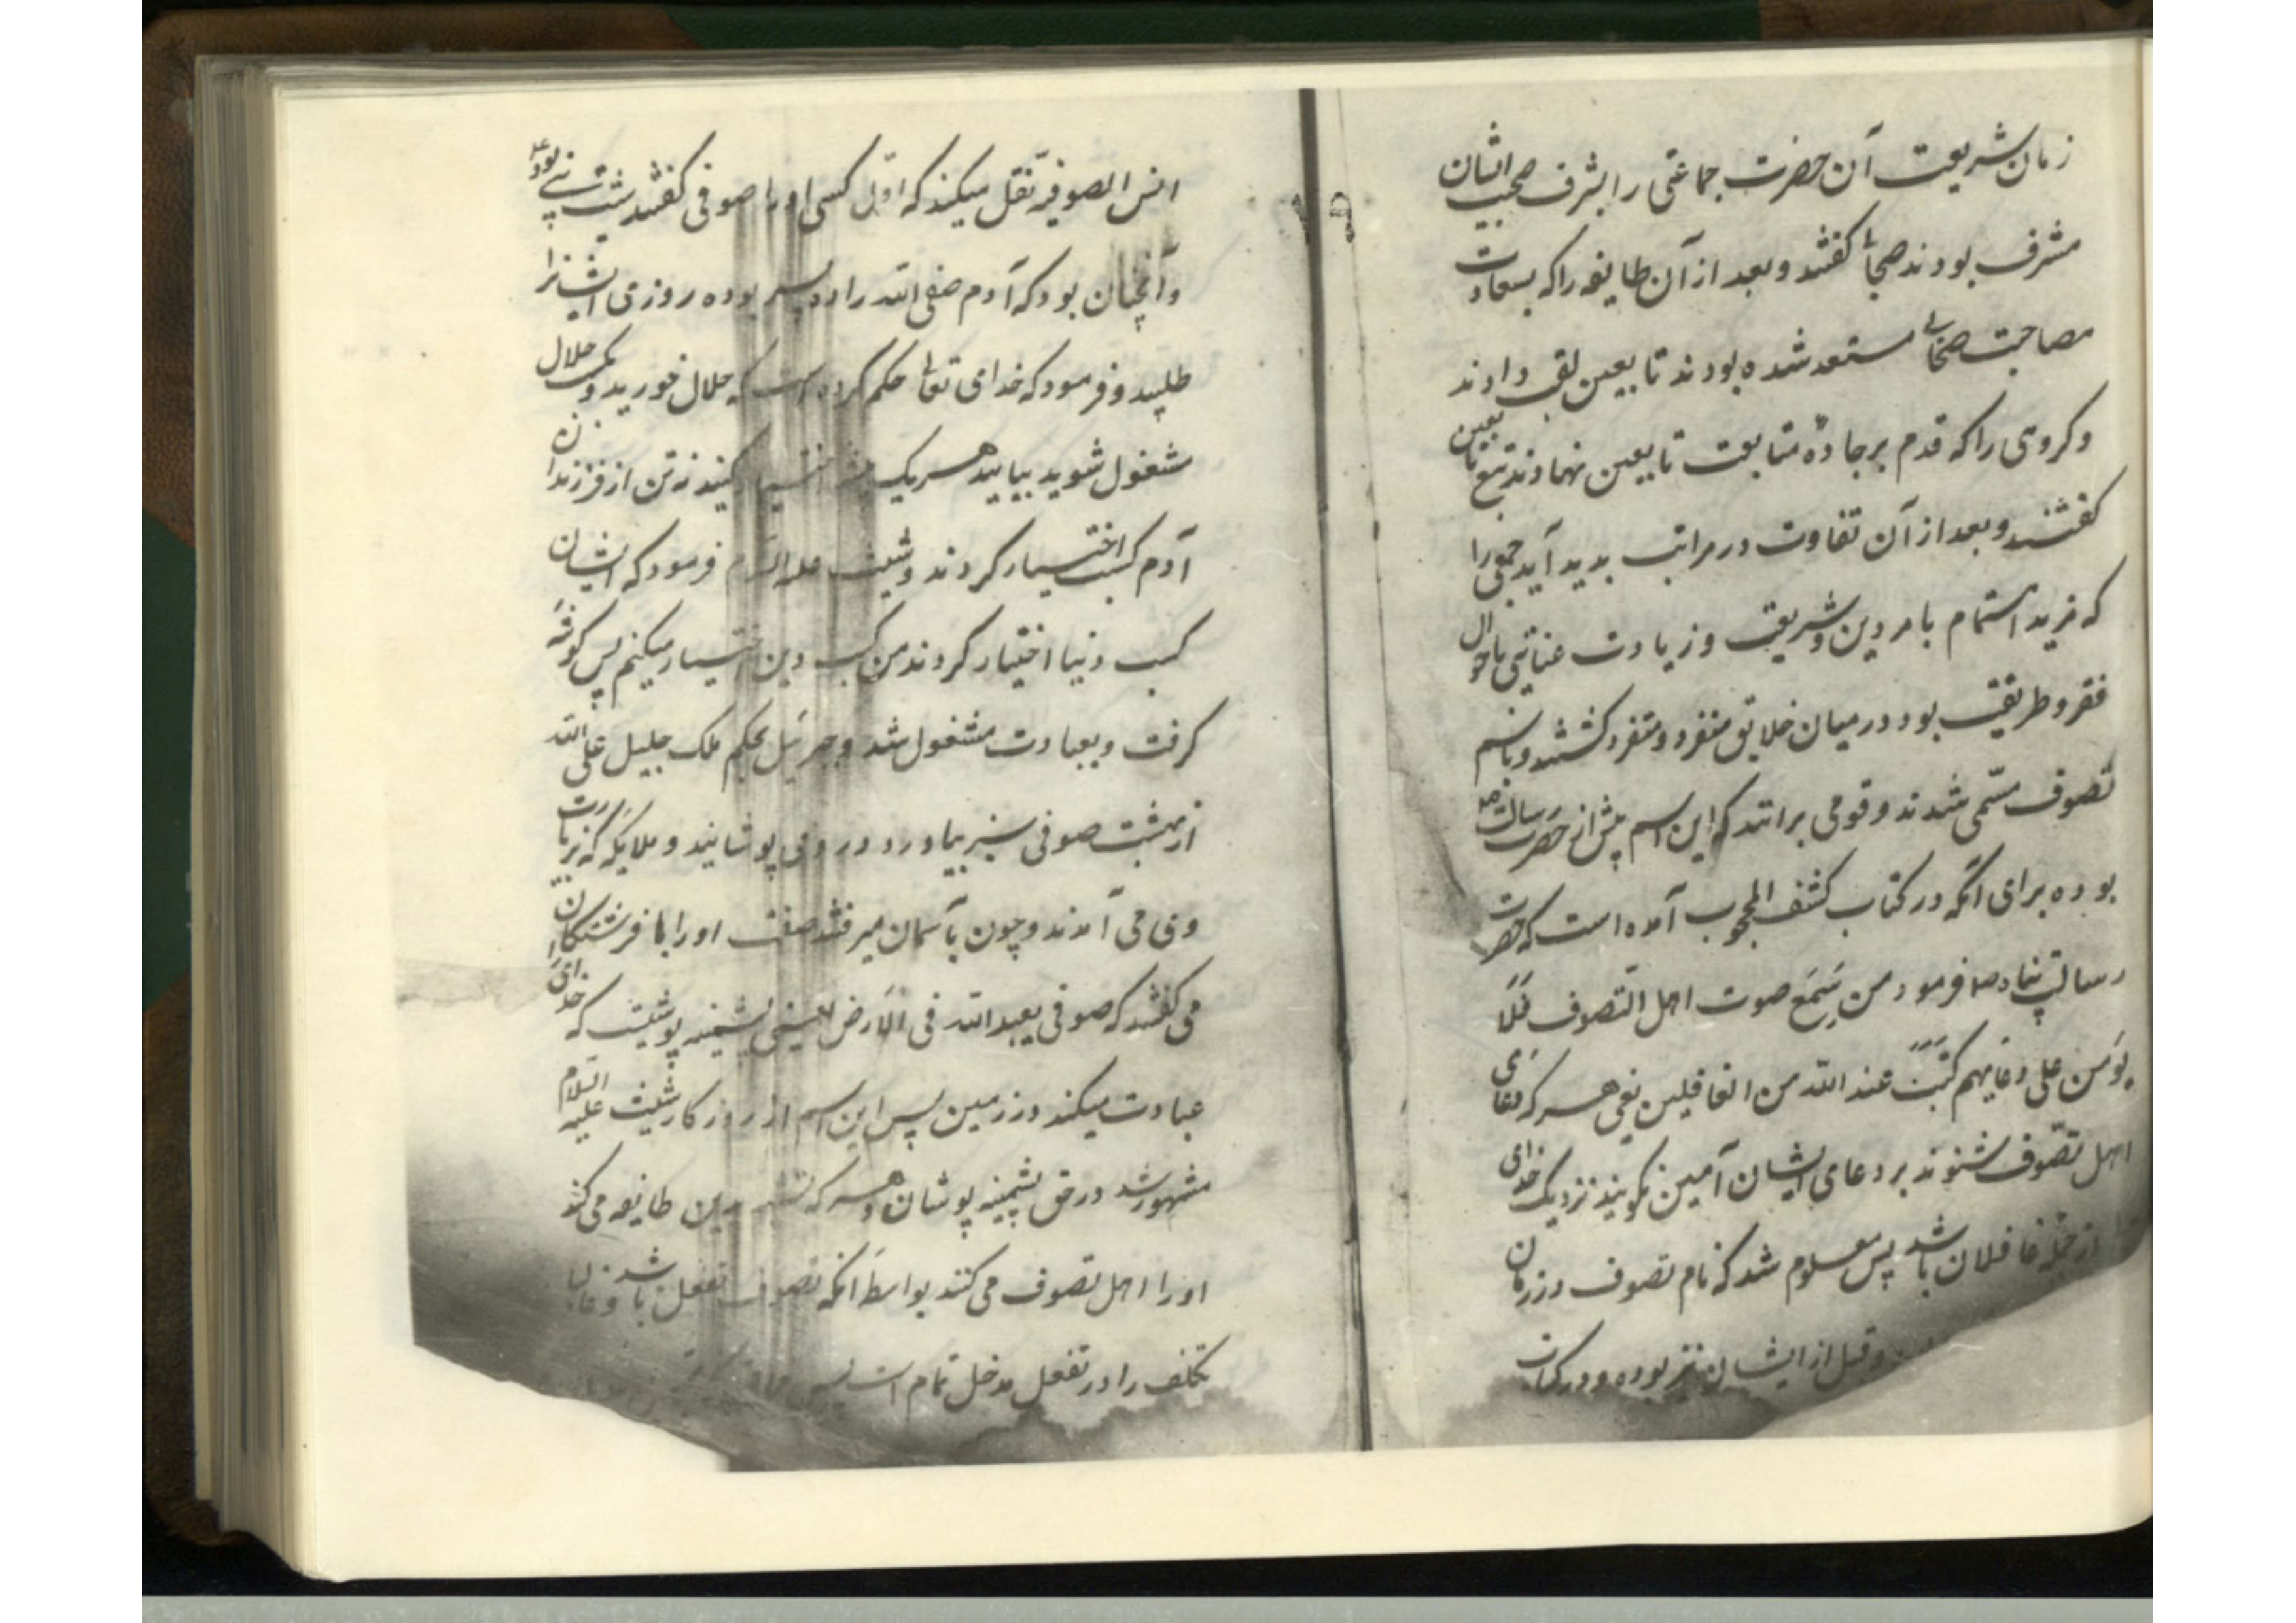 زمان شریعت آن حضرت جماعتی را بشرف صحبت ایشان
مشرف بودند صحابه گفتند و بعد از آن طایفه را که بسعادت
مصاحبت صحابی مستعد شده بودند تابعین لقب دادند
و کروهی را که قدم بر جادهٔ متابعت تابعین نهادند تبع تابعین
گفتند و بعد از آن تفاوت در مراتب پدید آید جمعی را
که مزید اهتمام بامر دین و شریعت و زیادت عنایتی باحوال
فقر و طریقت بود در میان خلایق منفرد و متفرد گشتند و باسم
تصوف مسّمی شدند و قومی برانند که این اسم پیش از حضرت رسالت صلعم
بوده برای انکه در کتاب کشف المحجوب آمده است که حضرت
رسالت پناه صلعم فرمود من سَمِعَ صوت اهل التصوف فَلَا
یؤمن علی دعایهم کُتِبَ عند الله من الغافلین یعنی هر که دعای
اهل تصوّف شنوند بر دعای ایشان آمین نکویند نزدیک خدای
از جملهٔ غافلان باشد پس معلوم شد که نام تصوف در زمان
و قبل از ایشان نیز بوده و در کتاب
انس الصوفیه نقل میکند که اوّل کسی او را صوفی گفتند شیث نبی بود
و آنچنان بود که آدم صفی الله را ده پسر بوده روزی ایشانرا
طلبید و فرمود که خدای تعالی حکم کرده است که حلال خورید و بکسب حلال
مشغول شوید بیایید هریک اختیار کنید نه تن از فرزندان
آدم کسب اختیار کردند و شیث علیه السلام فرمود که ایشان
کسب دنیا اختیار کردند من کسب دین اختیار میکنم پس کوشه
کرفت و بعبادت مشغول شد و جبرئیل بحکم ملک جلیل علی الله
از بهشت صوفی سبز بیاورد و در وی پوشانید و ملایکه که بزیارت
وی می آمدند و چون بآسمان میرفتند صفت او را با فرشتگان
می گفتند که صوفی یعبد الله فی الارض یعنی پشمینه پوشیست که خدای
عبادت میکند در زمین پس این اسم از روزکار شیث علیه السلام
مشهور شد در حق پشمینه پوشان و هر که تشبه بدین طایفه می کند
او را اهل تصوف می کنند بواسطه انکه تصوف تفعل باشد و غالبا
تکلف را در تفعل مدخل تمام است